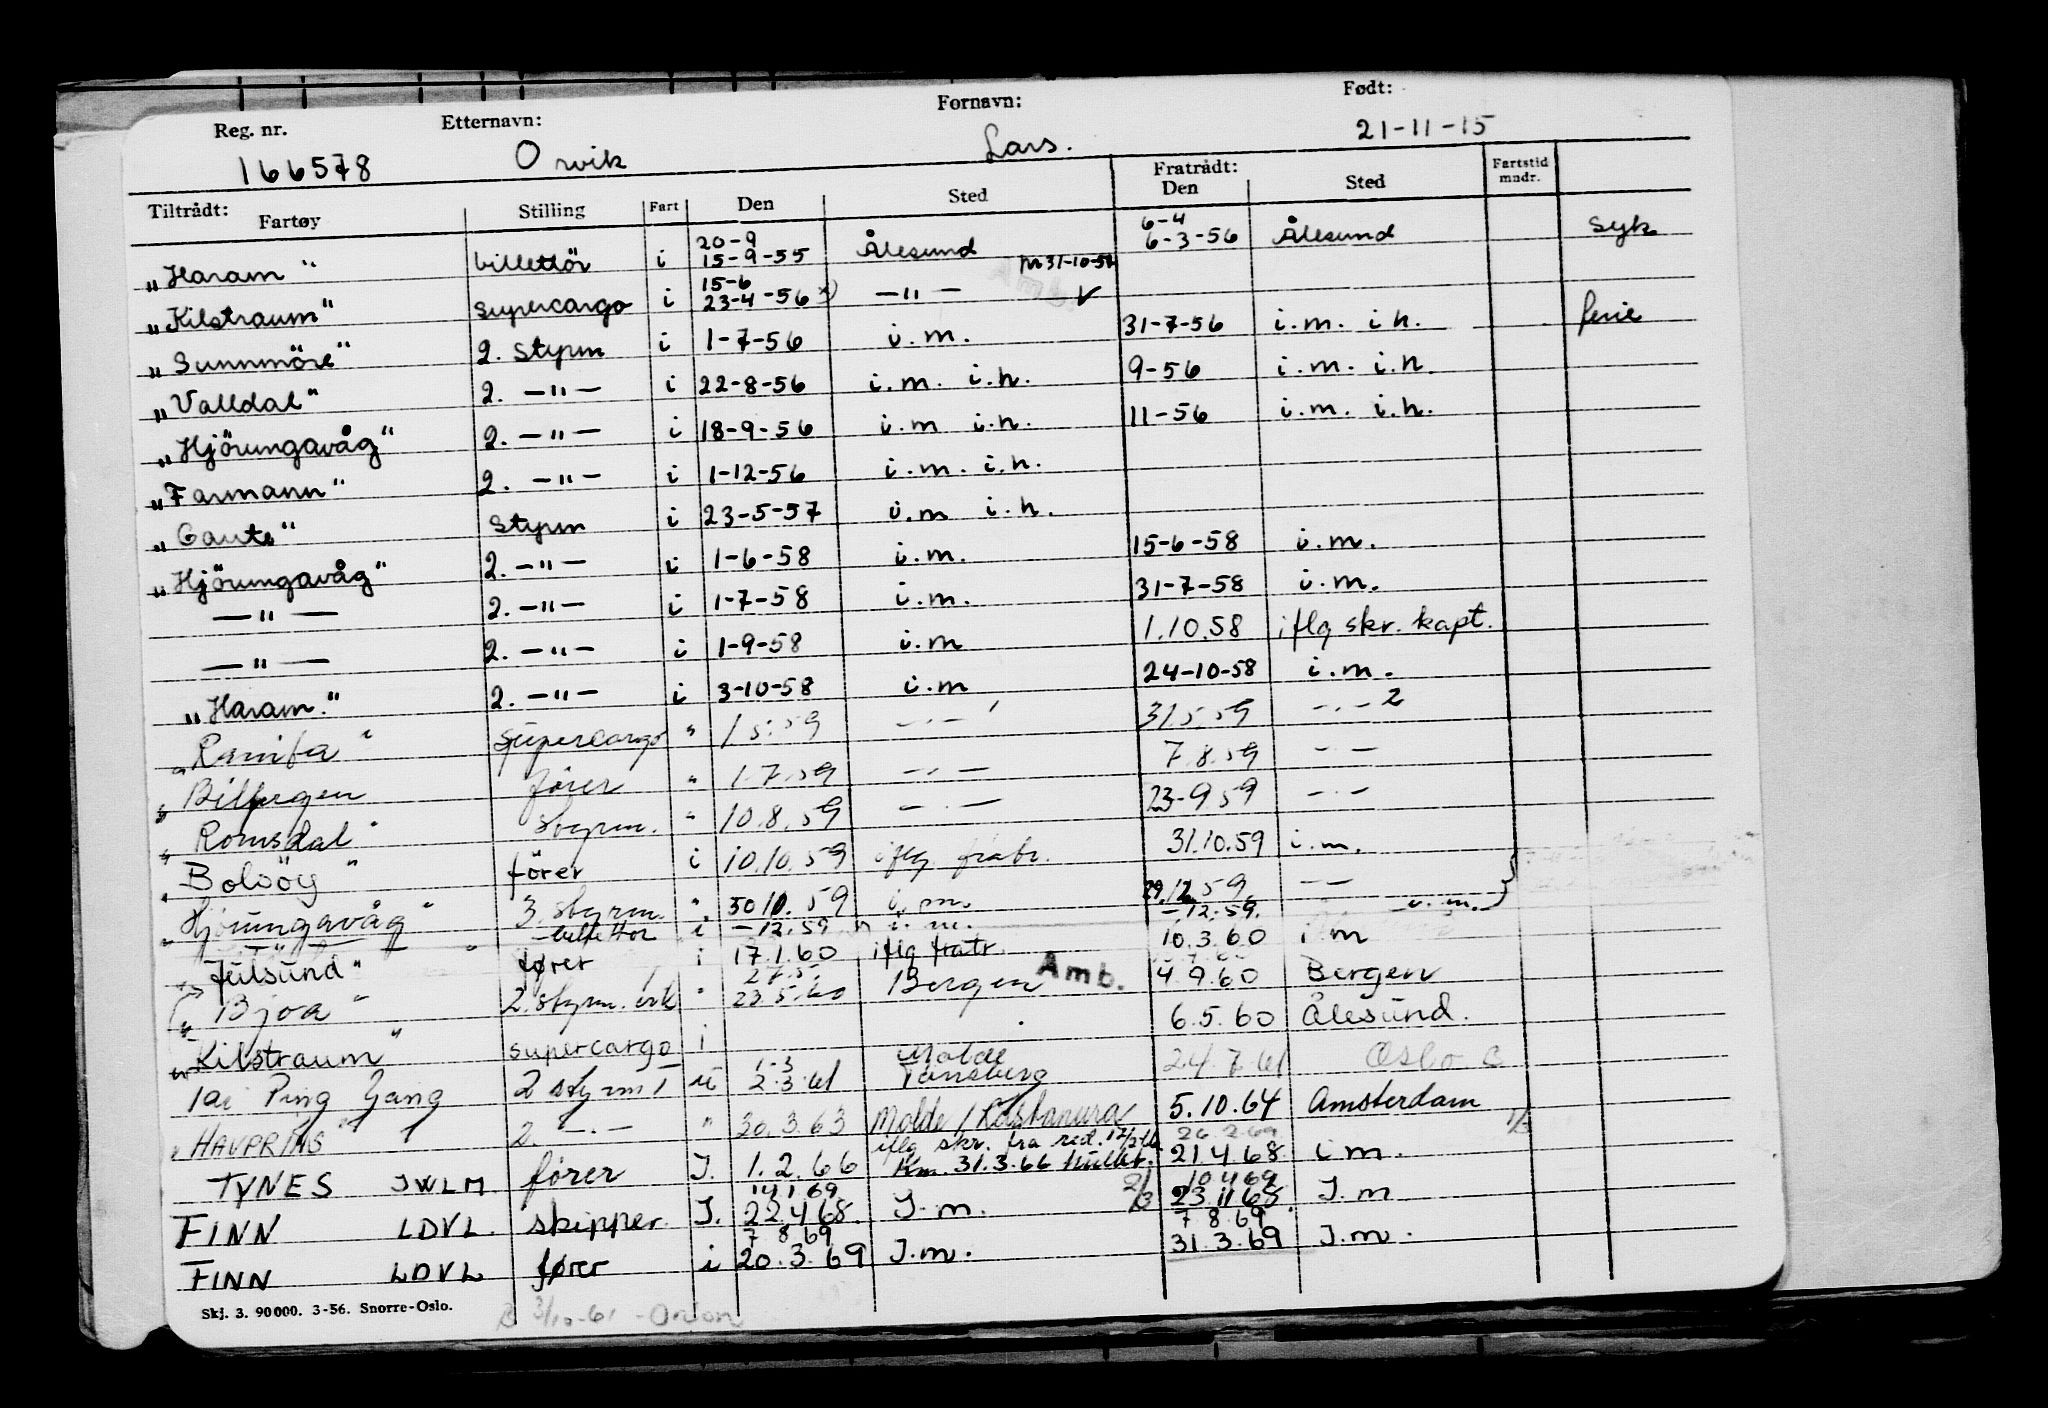 Reg. nr. Etternavn: Fornavn: Født:
166578 Orvik Lars. 21-11-15
Tiltrådt: Fartøy Stilling Fart Den Sted Fratrådt: Den Sted Fartstid mndr.
20-9 6-4
„Haram“ billettör i 15-9-55 Ålesund 6-3-56 Ålesund Syk
15-6
„Kilstraum“ supercargo i 23-4-56 —"—
„Sunnmöre“ 2. Styrm i 1-7-56 i.m. 31-7-56 i.m. i h. ferie
„Valldal“ 2. —"— i 22-8-56 i.m. i.h. 9-56 i.m. i.h.
„Hjörungavåg“ 2. —"— i 18-9-56 i.m i.h. 11-56 i.m. i.h.
„Farmann“ 2. —"— i 1-12-56 i.m. i.h.
„Gaute“ Styrm i 23-5-57 i.m i.h.
„Hjörungavåg“ 2. —"— i 1-6-58 i.m. 15-6-58 i.m.
—"— 2. —"— i 1-7-58 i.m. 31-7-58 i.m.
—"— 2. —"— i 1-9-58 i.m 1.10.58 iflg skr. kapt.
„Haram.“ 2. —"— i 3-10-58 i.m 24-10-58 i.m.
supercargo " 1.5.59 —.— 31.5.59 —.—
förer " 1.7.59 —.— 7.8.59 —.—
„Romsdal“ styrm. " 10.8.59 —.— 23-9.59 —.—
„Bolsöy“ förer i 10.10.59 iflg fratr. 31.10.59 i.m.
„Hjörungavåg“ 3. styrm. " 30 10. 59 i.m. 29.12.59 —
billettör i -12.59 i.m. -.12.59. i.m.
„Julsund“ fører i 17.1.60 iflg fratr. 10.3.60 i m
„Bjoa“ 2. styrm. " 23.5.60 Bergen Amb. 4.9.60 Bergen
„Kilstraum“ supercargo i 6.5.60 Ålesund.
1-3 Molde
Tai Ping Yang 2 styrm u 2.3.61 Tønsberg 24.7.61 Oslo
„HAVPRINS“ 2. —.— " 30.3.63 Molde / 5.10.64 Amsterdam
iflg skr. fra red.
TYNES JWLM fører J. 1.2.66 31.3.66 21.4.68 i m.
14 1 69 10 4 69
FINN LDVL. skipper. J. 22.4.68. J.m. 23.11.68 J.m
7 8 69 7 8.69.
FINN LDVL fører i 20.3.69 J.m. 31.3.69 J.m.
Skj. 3. 90 000. 3-56. Snorre-Oslo.